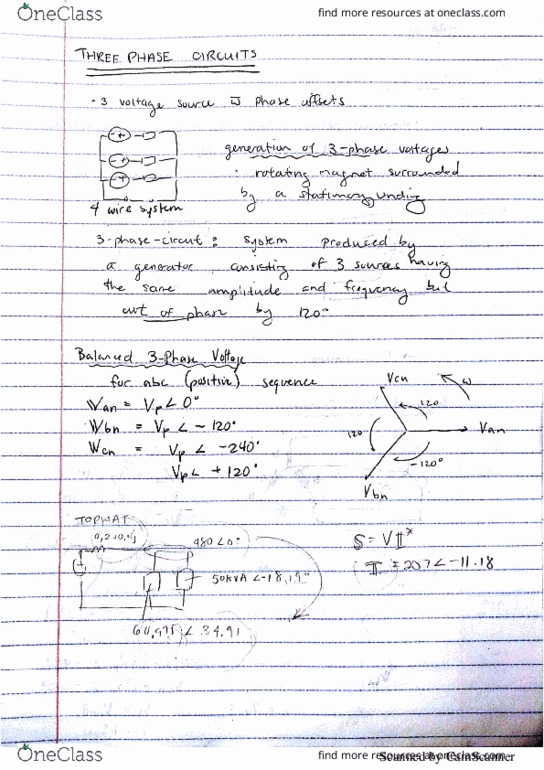 OneClass
find more resources at oneclass.com
THREE PHASE CIRCUITS
· 3 voltage source w̄ phase offsets
generation of 3-phase voltages
· rotating magnet surrounded
by a stationary winding
4 wire system
3-phase-circuit: system produced by
a generator consisting of 3 sources having
the same amplitude and frequency but
out of phase by 120°
Balanced 3-Phase Voltage
for abc (positive) sequence
Van = Vp∠0°
Vbn = Vp∠-120°
Vcn = Vp∠-240°
Vp∠+120°
Vcn
ω
120
Van
120
-120°
Vbn
TOPHAT
480∠0°
50kVA ∠-18.19°
∠34.91
S = VI*
I = 207∠-11.18
OneClass
find more resources at oneclass.com
Scanned by CamScanner